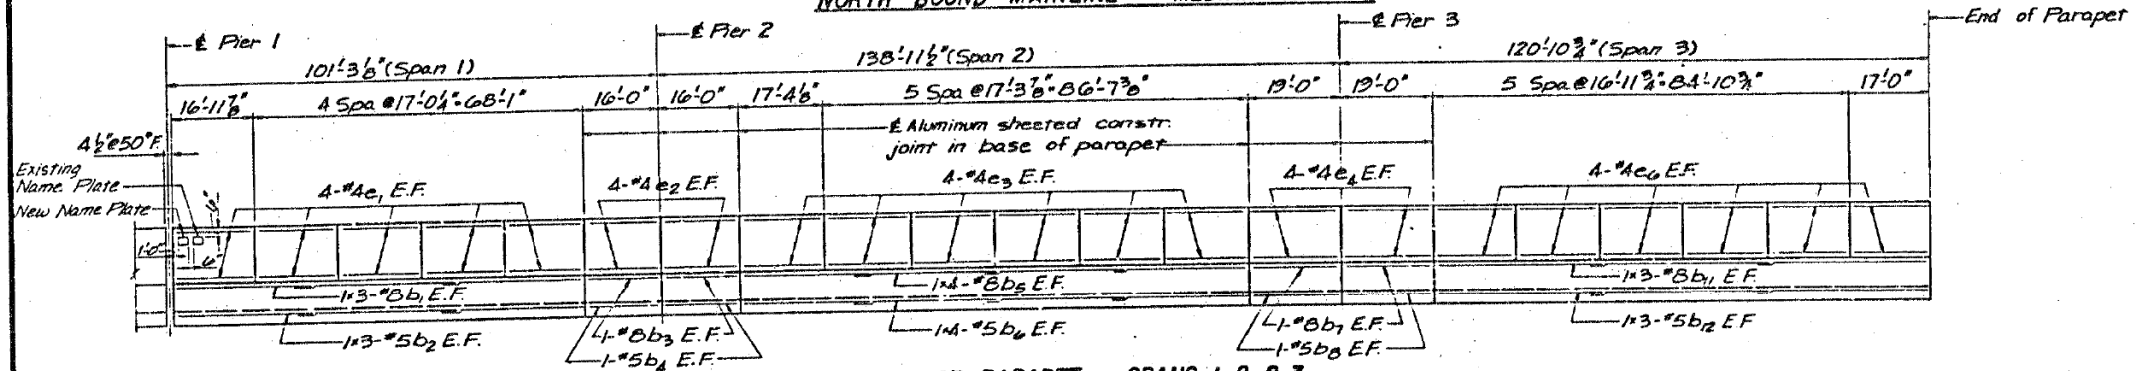 NORTH BOUND MAINLINE
℄ Pier 1
℄ Pier 2
℄ Pier 3
End of Parapet
101'-3⅛" (Span 1)
138'-11½" (Span 2)
120'-10¾" (Span 3)
16'-11⅞"
4 Spa @ 17'-0¼" = 68'-1"
16'-0"
16'-0"
17'-4⅛"
5 Spa @ 17'-3⅞" = 86'-7⅜"
19'-0"
19'-0"
5 Spa @ 16'-11¾" = 84'-10¾"
17'-0"
4½" @ 50° F.
℄ Aluminum sheeted constr.
joint in base of parapet
Existing
Name Plate
New Name Plate
4-#4e1 E.F.
4-#4e2 E.F.
4-#4e3 E.F.
4-#4e4 E.F.
4-#4e6 E.F.
6"
1'-0"
6"
1x3-#8b1 E.F.
1x4-#8b5 E.F.
1x3-#8b11 E.F.
1x3-#5b2 E.F.
1-#8b3 E.F.
1-#5b4 E.F.
1x4-#5b6 E.F.
1-#8b7 E.F.
1-#5b8 E.F.
1x3-#5b12 E.F.